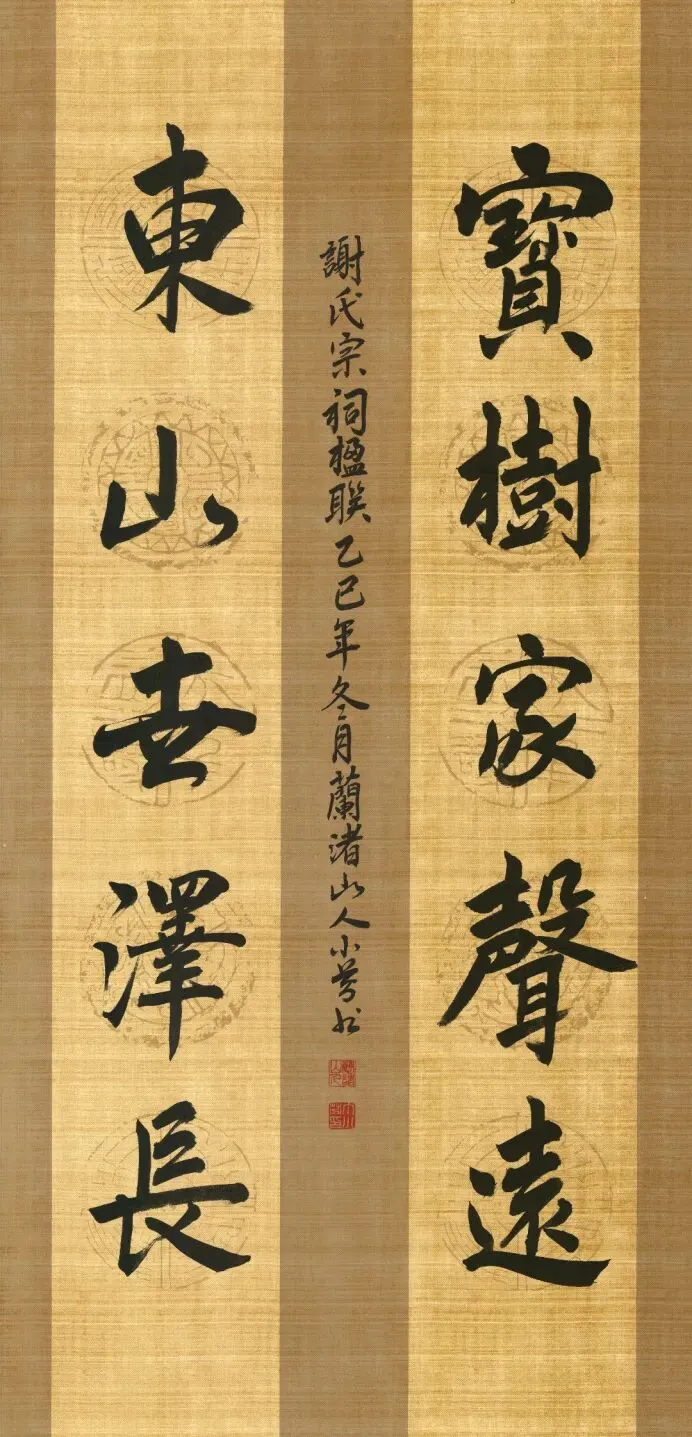 寶樹家聲遠
東山世澤長
謝氏宗祠楹联乙巳年冬月蘭渚山人小芳书